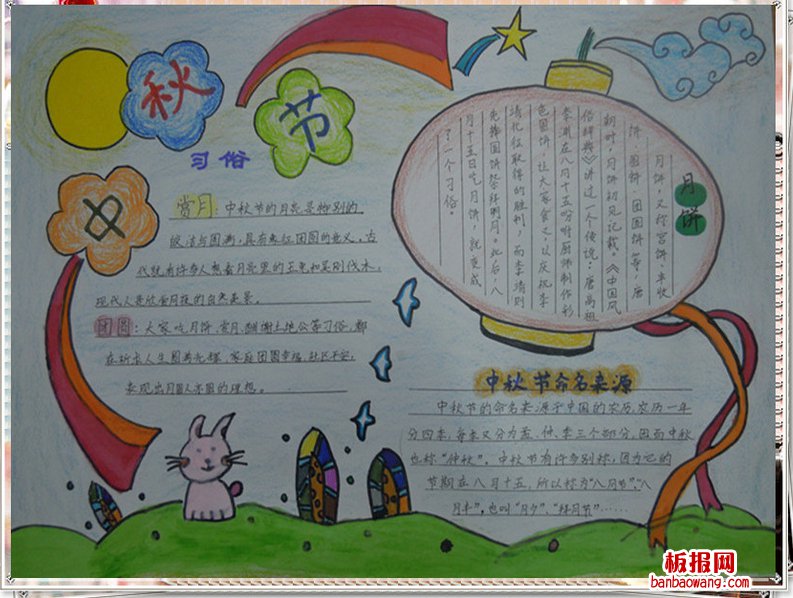 中
秋
节
习俗
赏月:中秋节的月亮是特别的
皎洁与圆满,具有象征团圆的意义。古
代就有许多人想着月亮里的玉兔和吴刚伐木,
现代人竟欣赏月夜的自然美景。
团圆:大家吃月饼、赏月、酬谢土地公等习俗,都
在祈求人生圆满无缺、家庭团圆幸福、社区平安,
表现出月圆人亦圆的理想。
月饼
月饼,又称宫饼、丰收
饼、圆饼、团圆饼等,唐
朝时,月饼初见记载。《中国风
俗辞典》讲过一个传说:唐高祖
李渊在八月十五吩咐厨师制作彩
色圆饼,让大家食之,以庆祝李
靖北征取得的胜利,而李靖则
先捧圆饼祭拜明月。此后,八
月十五日吃月饼,就变成
了一个习俗。
中秋节命名来源
中秋节的命名来源于中国的农历,农历一年
分四季,每季又分为孟、仲、季三个部分,因而中秋
也称“仲秋”。中秋节有许多别称,因为它的
节期在八月十五,所以称为“八月节”、“八
月半”,也叫“月夕”、“拜月节”……
板报网
banbaowang.com